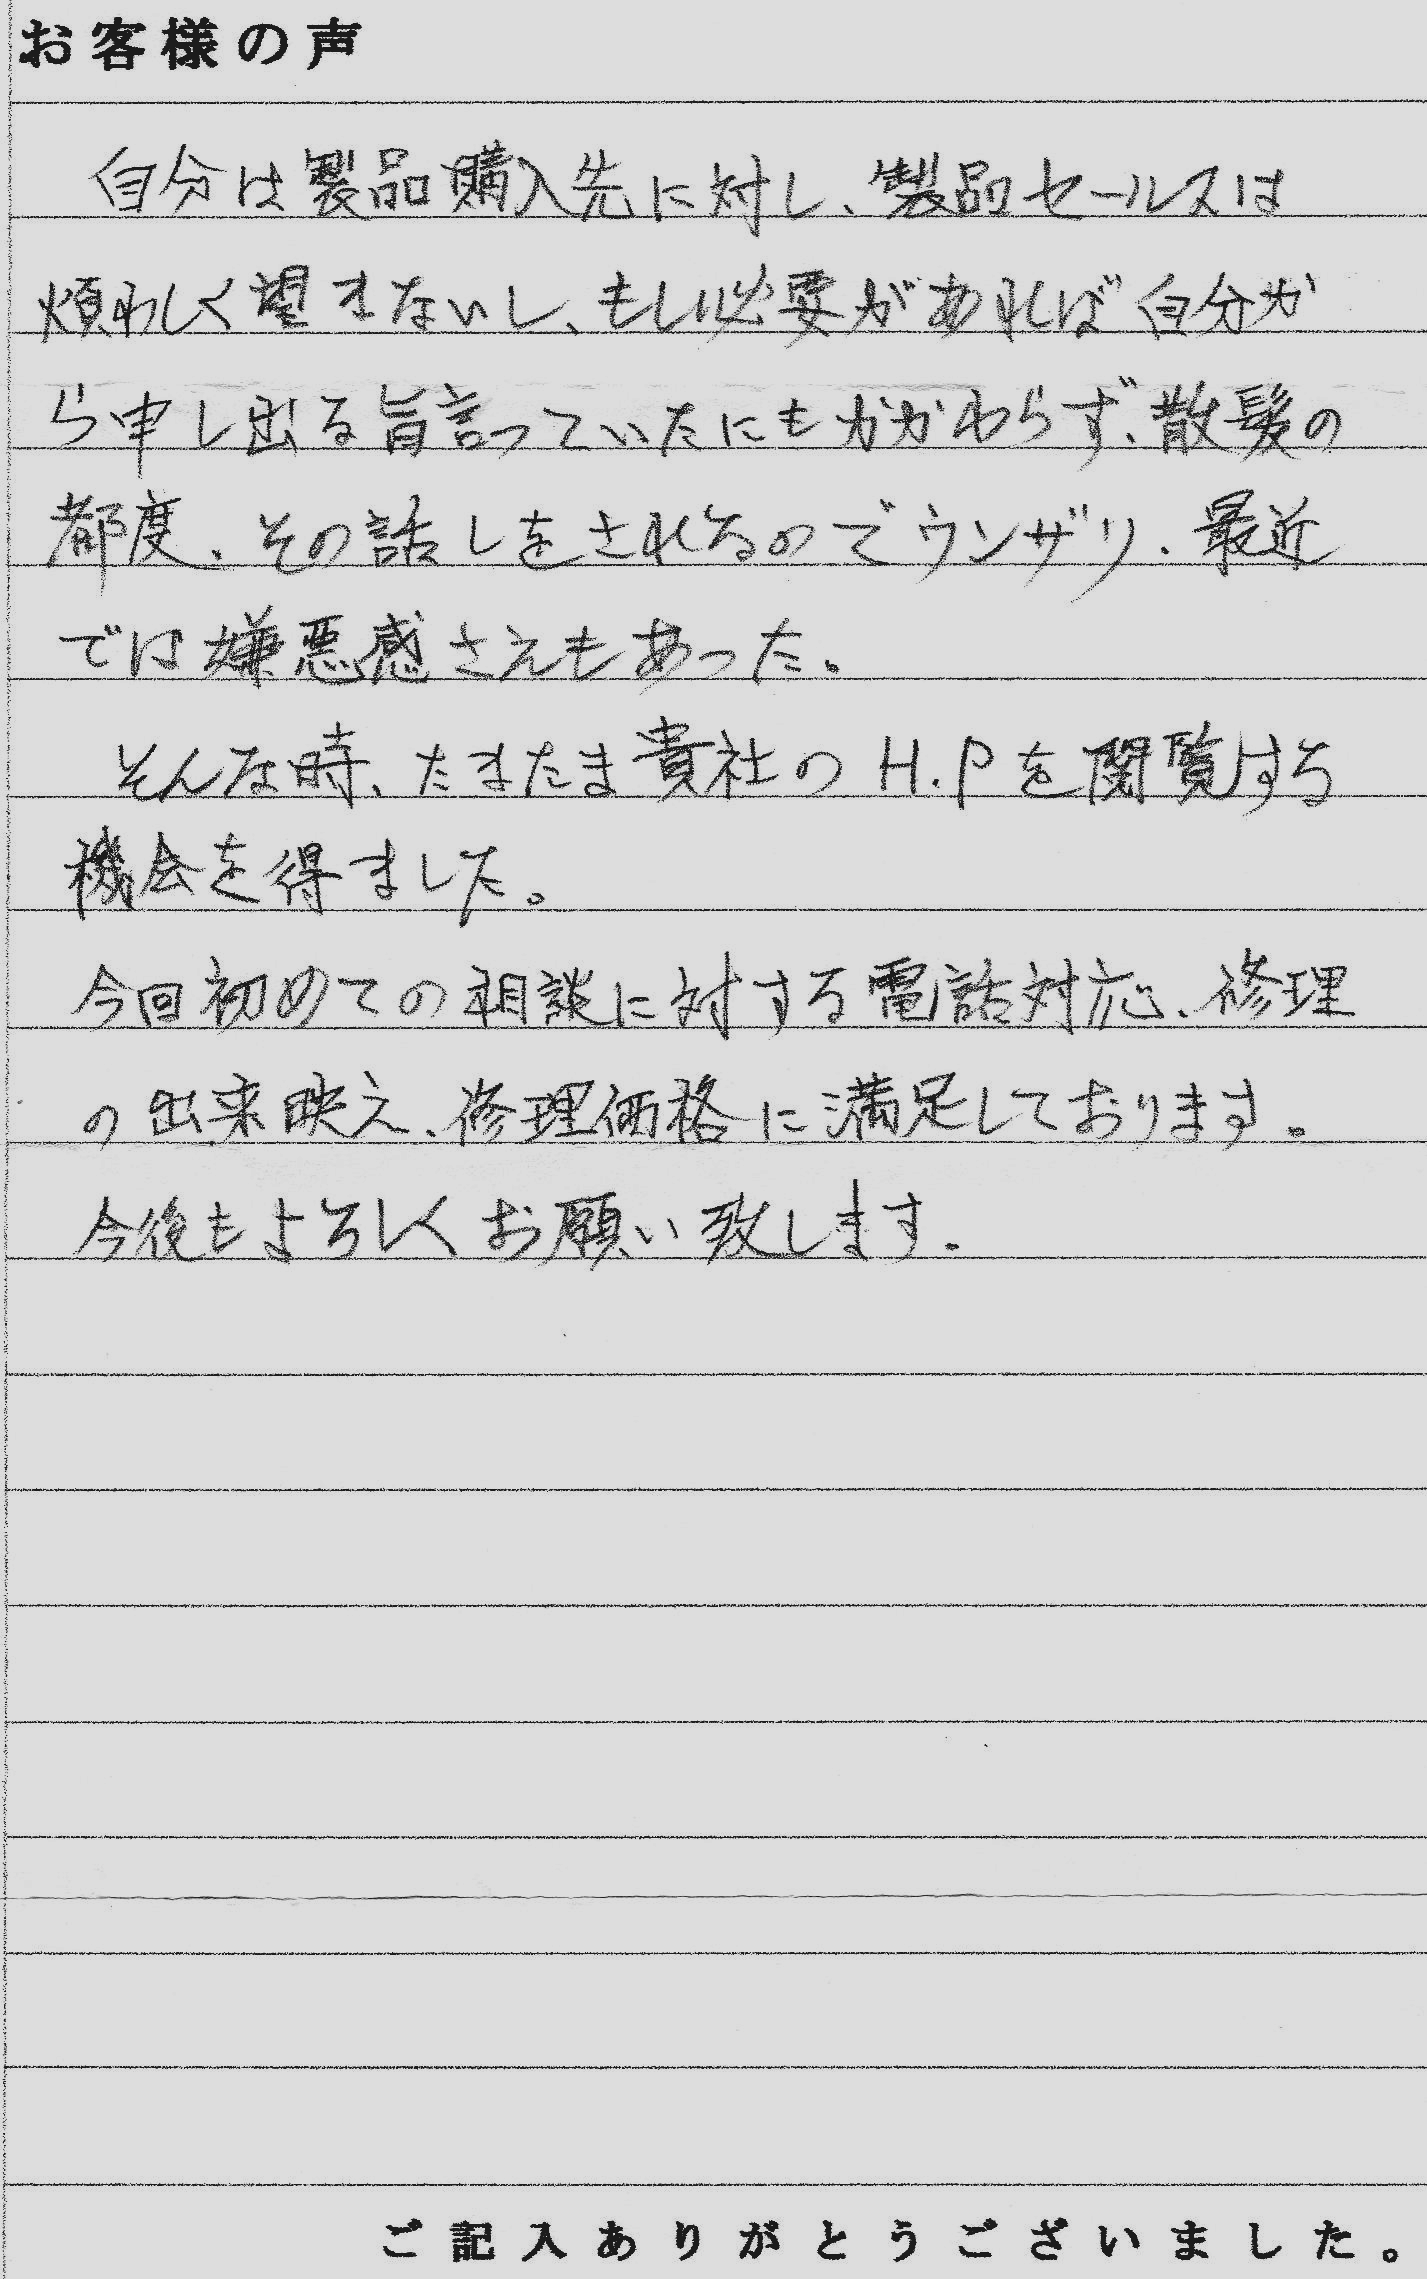 お客様の声
自分は製品購入先に対し、製品セールスは
煩わしく望まないし、もし必要があれば自分か
ら申し出る旨言っていたにもかかわらず、散髪の
都度、その話しをされるのでウンザリ、最近
では嫌悪感さえもあった。
そんな時、たまたま貴社のH.Pを閲覧する
機会を得ました。
今回初めての相談に対する電話対応、修理
の出来映え、修理価格に満足しております。
今後もよろしくお願い致します。
ご記入ありがとうございました。